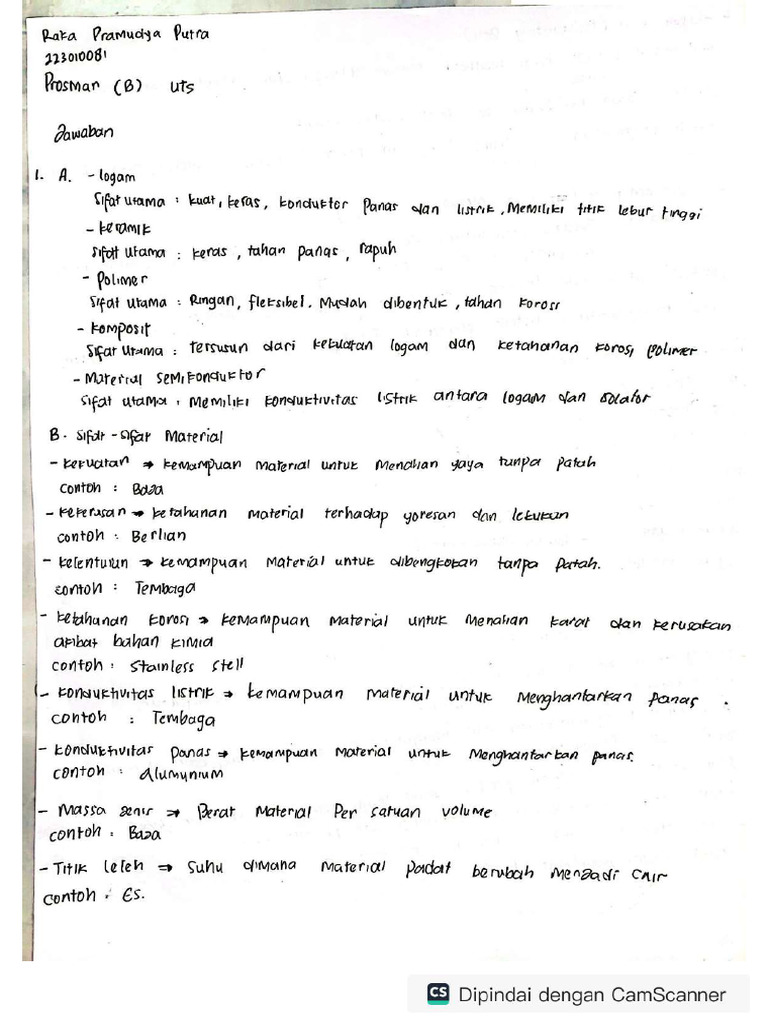 Raka Pramudya Putra
223010081
Prosman (B) UTS
Jawaban
1. A. - logam
Sifat utama : kuat, keras, konduktor Panas dan listrik, Memiliki titik lebur tinggi
- keramik
Sifat utama : keras, tahan panas, rapuh
- Polimer
Sifat utama : Ringan, fleksibel. Mudah dibentuk, tahan korosi
- Komposit
Sifat utama : tersusun dari kekuatan logam dan ketahanan korosi polimer
- Material semikonduktor
Sifat utama : Memiliki konduktivitas listrik antara logam dan isolator
B. Sifat-sifat Material
- kekuatan → kemampuan Material untuk Menahan gaya tanpa Patah
contoh : Baja
- kekerasan → ketahanan Material terhadap goresan dan lekukan
contoh : Berlian
- kelenturan → kemampuan Material untuk dibengkokan tanpa Patah.
contoh : Tembaga
- ketahanan korosi → kemampuan Material untuk Menahan karat dan kerusakan
akibat bahan kimia
contoh : Stainless Stell
- konduktivitas listrik → kemampuan Material untuk Menghantarkan Panas.
contoh : Tembaga
- konduktivitas panas → kemampuan Material untuk Menghantarkan panas.
contoh : alumunium
- Massa jenis → Berat Material Per satuan volume
contoh : Baja
- Titik leleh → Suhu dimana Material padat berubah menjadi cair
contoh : Es.
CS Dipindai dengan CamScanner